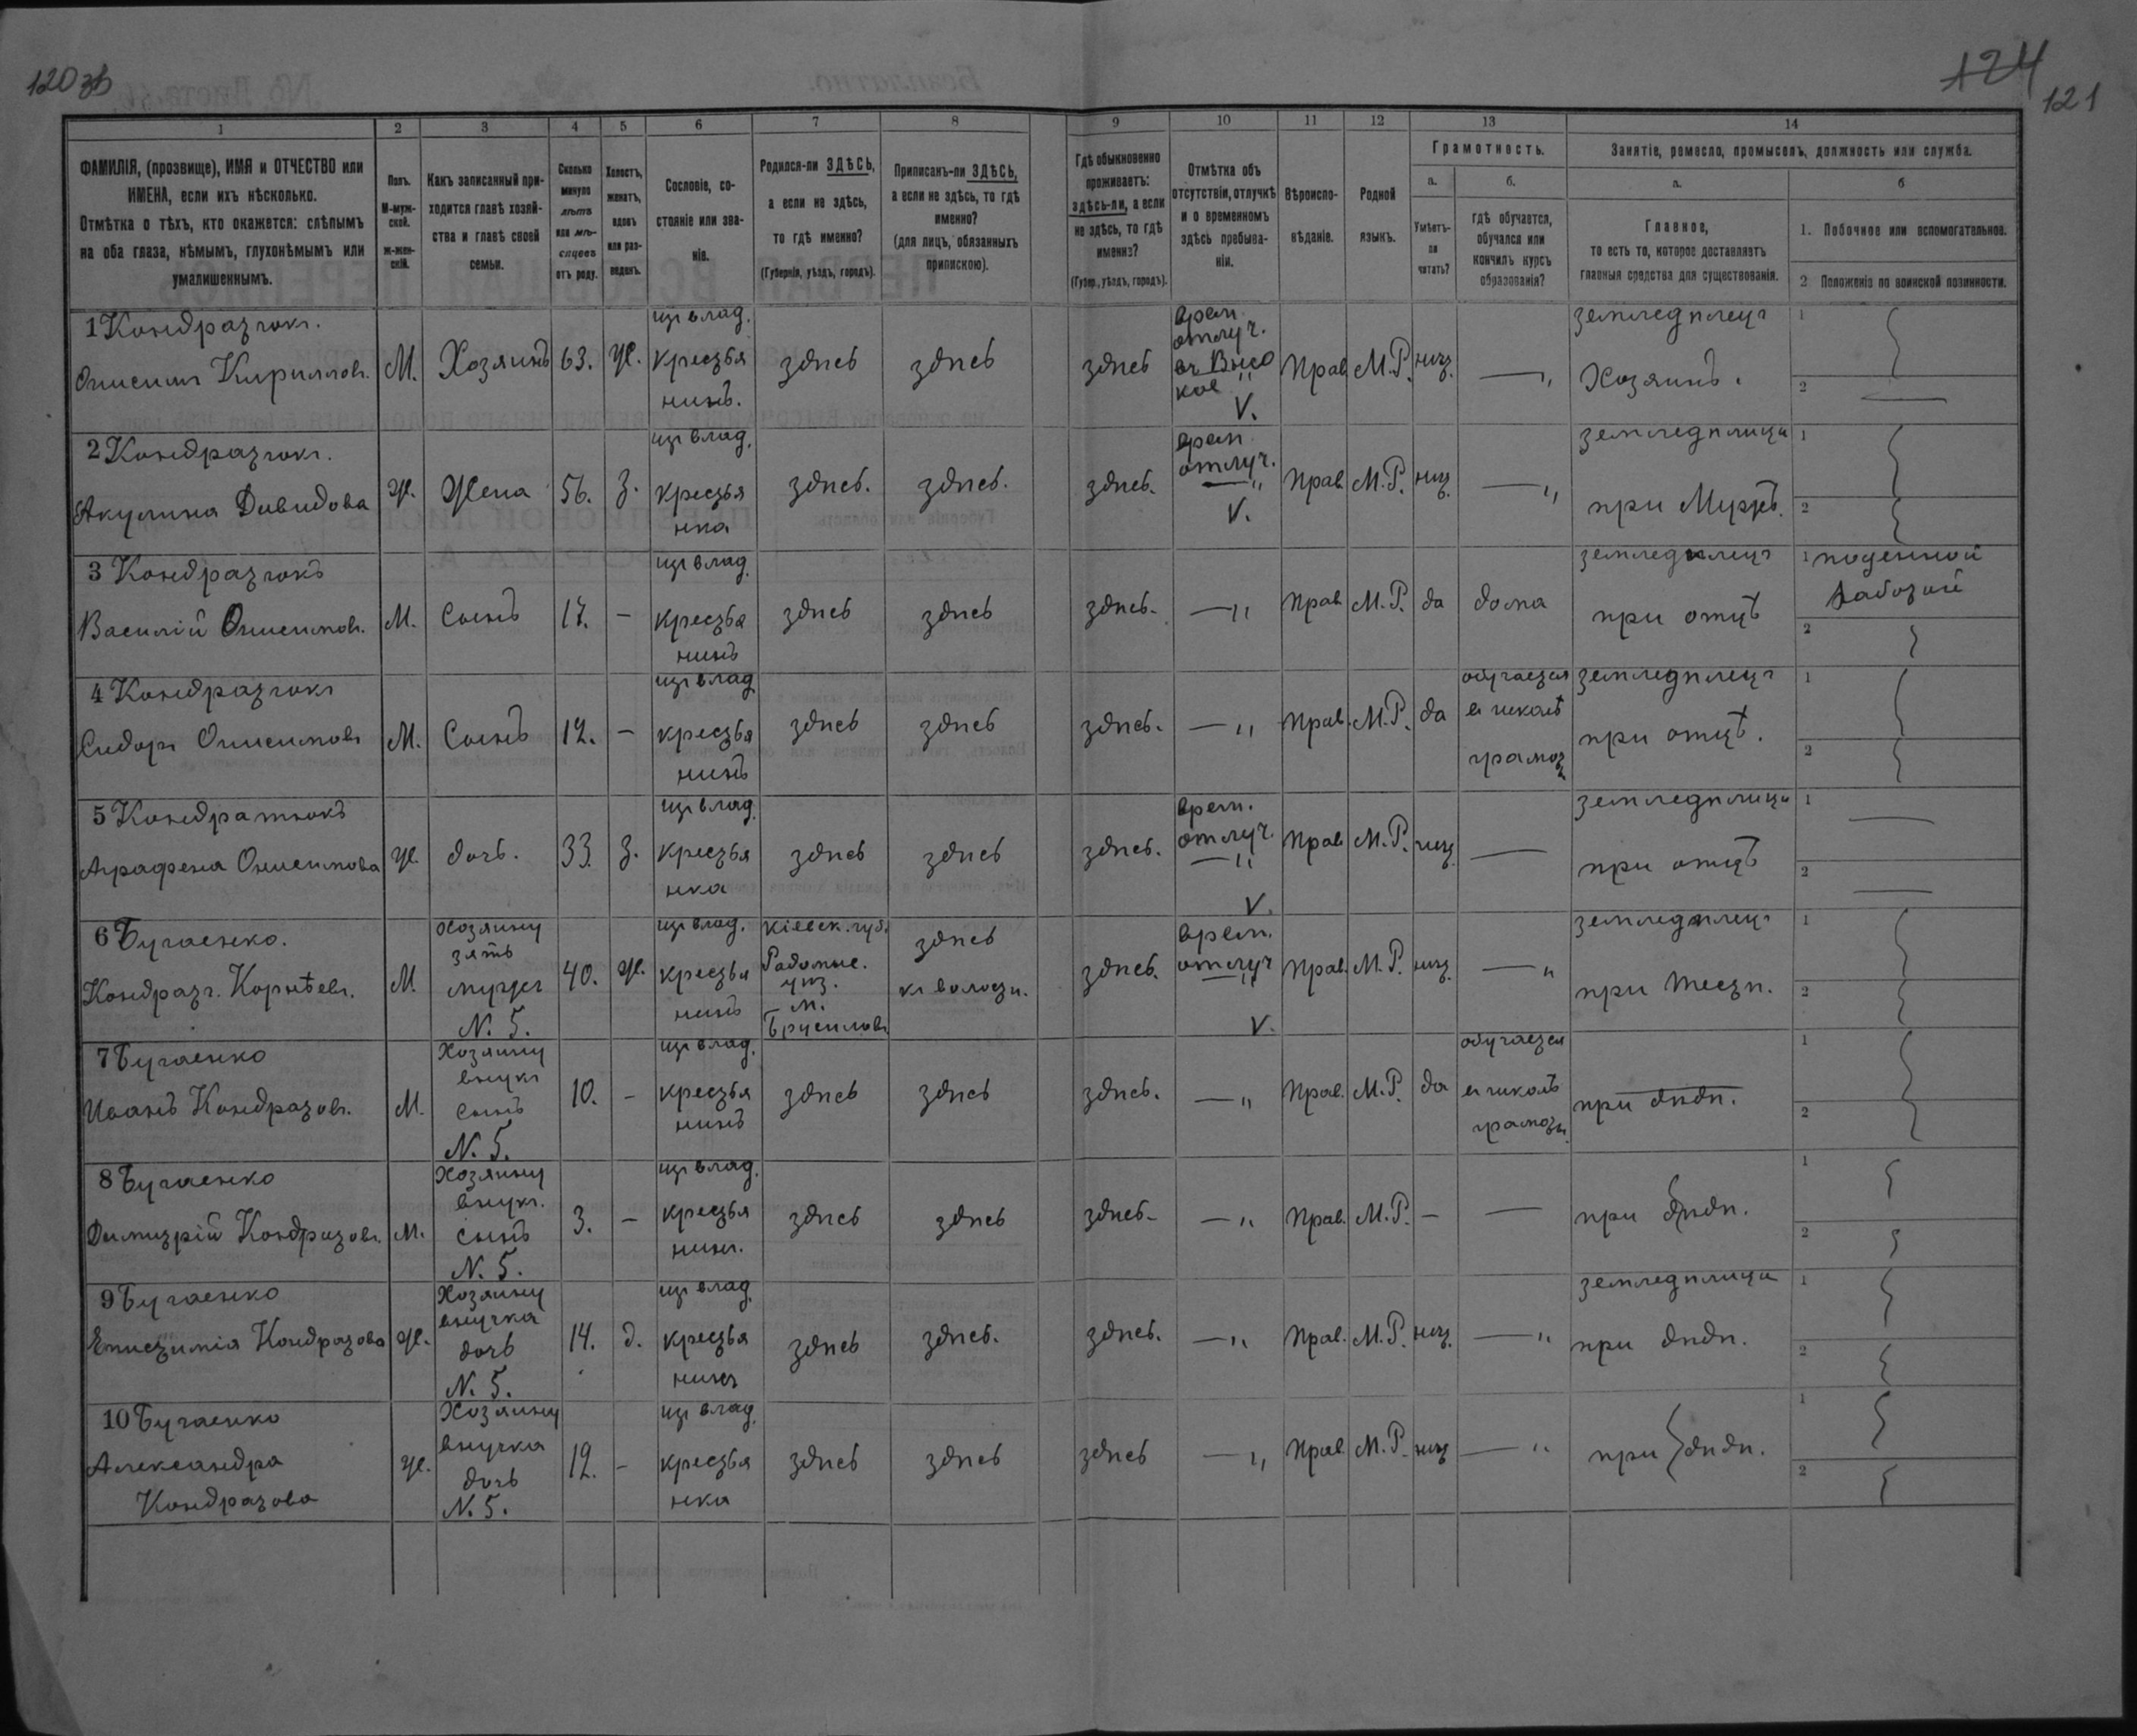 120 зв
124
121
1 2 3 4 5 6 7 8 9 10 11 12 13 14
ФАМИЛІЯ, (прозвище), ИМЯ и ОТЧЕСТВО или
ИМЕНА, если ихъ нѣсколько.
Отмѣтка о тѣхъ, кто окажется: слѣпымъ
на оба глаза, нѣмымъ, глухонѣмымъ или
умалишеннымъ.
Полъ.
М-муж-
ской.
ж-жен-
скій.
Какъ записанный при-
ходится главѣ хозяй-
ства и главѣ своей
семьи.
Сколько
минуло
лѣтъ
или мѣ-
сяцевъ
отъ роду.
Холостъ,
женатъ,
вдовъ
или раз-
веденъ.
Сословіе, со-
стояніе или зва-
ніе.
Родился-ли ЗДѢСЬ,
а если не здѣсь,
то гдѣ именно?
(Губернія, уѣздъ, городъ).
Приписанъ-ли ЗДѢСЬ,
а если не здѣсь, то гдѣ
именно?
(для лицъ, обязанныхъ
припискою).
Гдѣ обыкновенно
проживаетъ:
здѣсь-ли, а если
не здѣсь, то гдѣ
именно?
(Губер., уѣздъ, городъ).
Отмѣтка объ
отсутствіи, отлучкѣ
и о временномъ
здѣсь пребыва-
ніи.
Вѣроиспо-
вѣданіе.
Родной
языкъ.
Грамотность.
а.
Умѣетъ-
ли
читать?
б.
гдѣ обучается,
обучался или
кончилъ курсъ
образованія?
Занятіе, ремесло, промыселъ, должность или служба.
а.
Главное,
то есть то, которое доставляетъ
главныя средства для существованія.
б
1. Побочное или вспомогательное.
2 Положеніе по воинской повинности.
1 Кондратюкъ.
Онисимъ Кирилловъ.
М.
Хозяинъ
63.
Ж.
изъ влад.
крестья
нинъ.
здѣсь
здѣсь
здѣсь
врем.
отлуч.
въ Высо
кое
V.
Прав
М.Р.
нѣт.
— „
земледѣлецъ
Хозяинъ.
1
2
2 Кондратюкъ.
Акулина Давидова
Ж.
Жена
56.
З.
изъ влад.
крестья
нка
здѣсь.
здѣсь.
здѣсь.
врем.
отлуч.
— „
V.
Прав.
М.Р.
нѣт.
— „
земледѣлица
при Мужѣ.
1
2
3 Кондратюкъ
Василій Онисимовъ.
М.
Сынъ
17.
–
изъ влад.
крестья
нинъ
здѣсь
здѣсь
здѣсь.
— „
Прав.
М.Р.
да
дома
земледѣлецъ
при отцѣ
1 поденной
работой
2
4 Кондратюкъ
Сидоръ Онисимовъ
М.
Сынъ
12.
–
изъ влад
крестья
нинъ
здѣсь
здѣсь
здѣсь.
— „
Прав.
М.Р.
да
обучается
въ школѣ
грамоты
земледѣлецъ
при отцѣ.
1
2
5 Кондратюкъ
Аграфена Онисимова
Ж.
дочь.
33.
З.
изъ влад.
крестья
нка
здѣсь
здѣсь
здѣсь.
врем.
отлуч.
— „
V.
Прав
М.Р.
нѣт.
—
земледѣлица
при отцѣ
1
2
6 Бугаенко.
Кондратъ Корнѣевъ.
М.
Хозяину
зять
мужъ
N. 5.
40.
Ж.
изъ влад.
крестья
нинъ
Кіевск. губ.
Радомыс.
уѣз.
м.
Брусиловъ
здѣсь
къ волости.
здѣсь.
врем.
отлуч
— „
V.
Прав.
М.Р.
нѣт.
— „
земледѣлецъ
при тестѣ.
1
2
7 Бугаенко
Иванъ Кондратовъ.
М.
Хозяину
внукъ
сынъ
N. 5.
10.
–
изъ влад.
крестья
нинъ
здѣсь
здѣсь
здѣсь.
— „
Прав.
М.Р.
да
обучается
въ школѣ
грамоты.
при дѣдѣ.
1
2
8 Бугаенко
Димитрій Кондратовъ.
М.
Хозяину
внукъ.
сынъ
N. 5.
3.
–
изъ влад.
крестья
нинъ.
здѣсь
здѣсь
здѣсь.
— „
Прав.
М.Р.
–
—
при дѣдѣ.
1
2
9 Бугаенко
Епистимія Кондратова
Ж.
Хозяину
внучка
дочь
N. 5.
14.
д.
изъ влад.
крестья
нинъ
здѣсь
здѣсь.
здѣсь.
— „
Прав.
М.Р.
нѣт.
— „
земледѣлица
при дѣдѣ.
1
2
10 Бугаенко
Александра
Кондратова
Ж.
Хозяину
внучка
дочь
N. 5.
12.
–
изъ влад.
крестья
нка
здѣсь
здѣсь
здѣсь
— „
Прав.
М.Р.
нѣт
— „
при дѣдѣ.
1
2